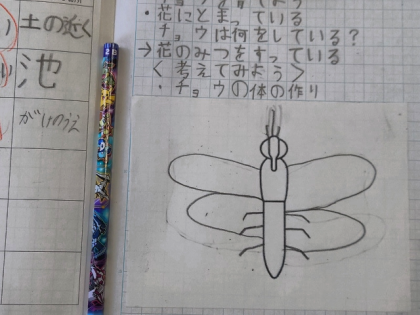 土の近く
池
がけのうえ
・花にとまっている
チョウは何をしている?
→花のみつをすっている
<考えてみよう>
・チョウの体の作り